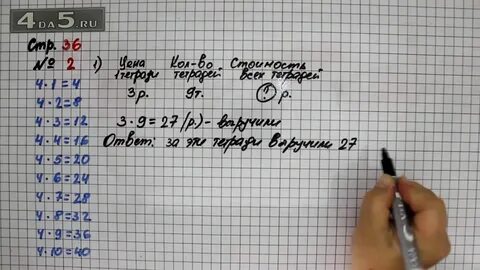 4DA5.RU
Стр. 36
№ 2 1) Цена Кол-во Стоимость
1 тетради тетрадей всех тетрадей
3 р. 9 т. ? р.
3 · 9 = 27 (р.) - выручили
Ответ: за эти тетради выручили 27
4 · 1 = 4
4 · 2 = 8
4 · 3 = 12
4 · 4 = 16
4 · 5 = 20
4 · 6 = 24
4 · 7 = 28
4 · 8 = 32
4 · 9 = 36
4 · 10 = 40